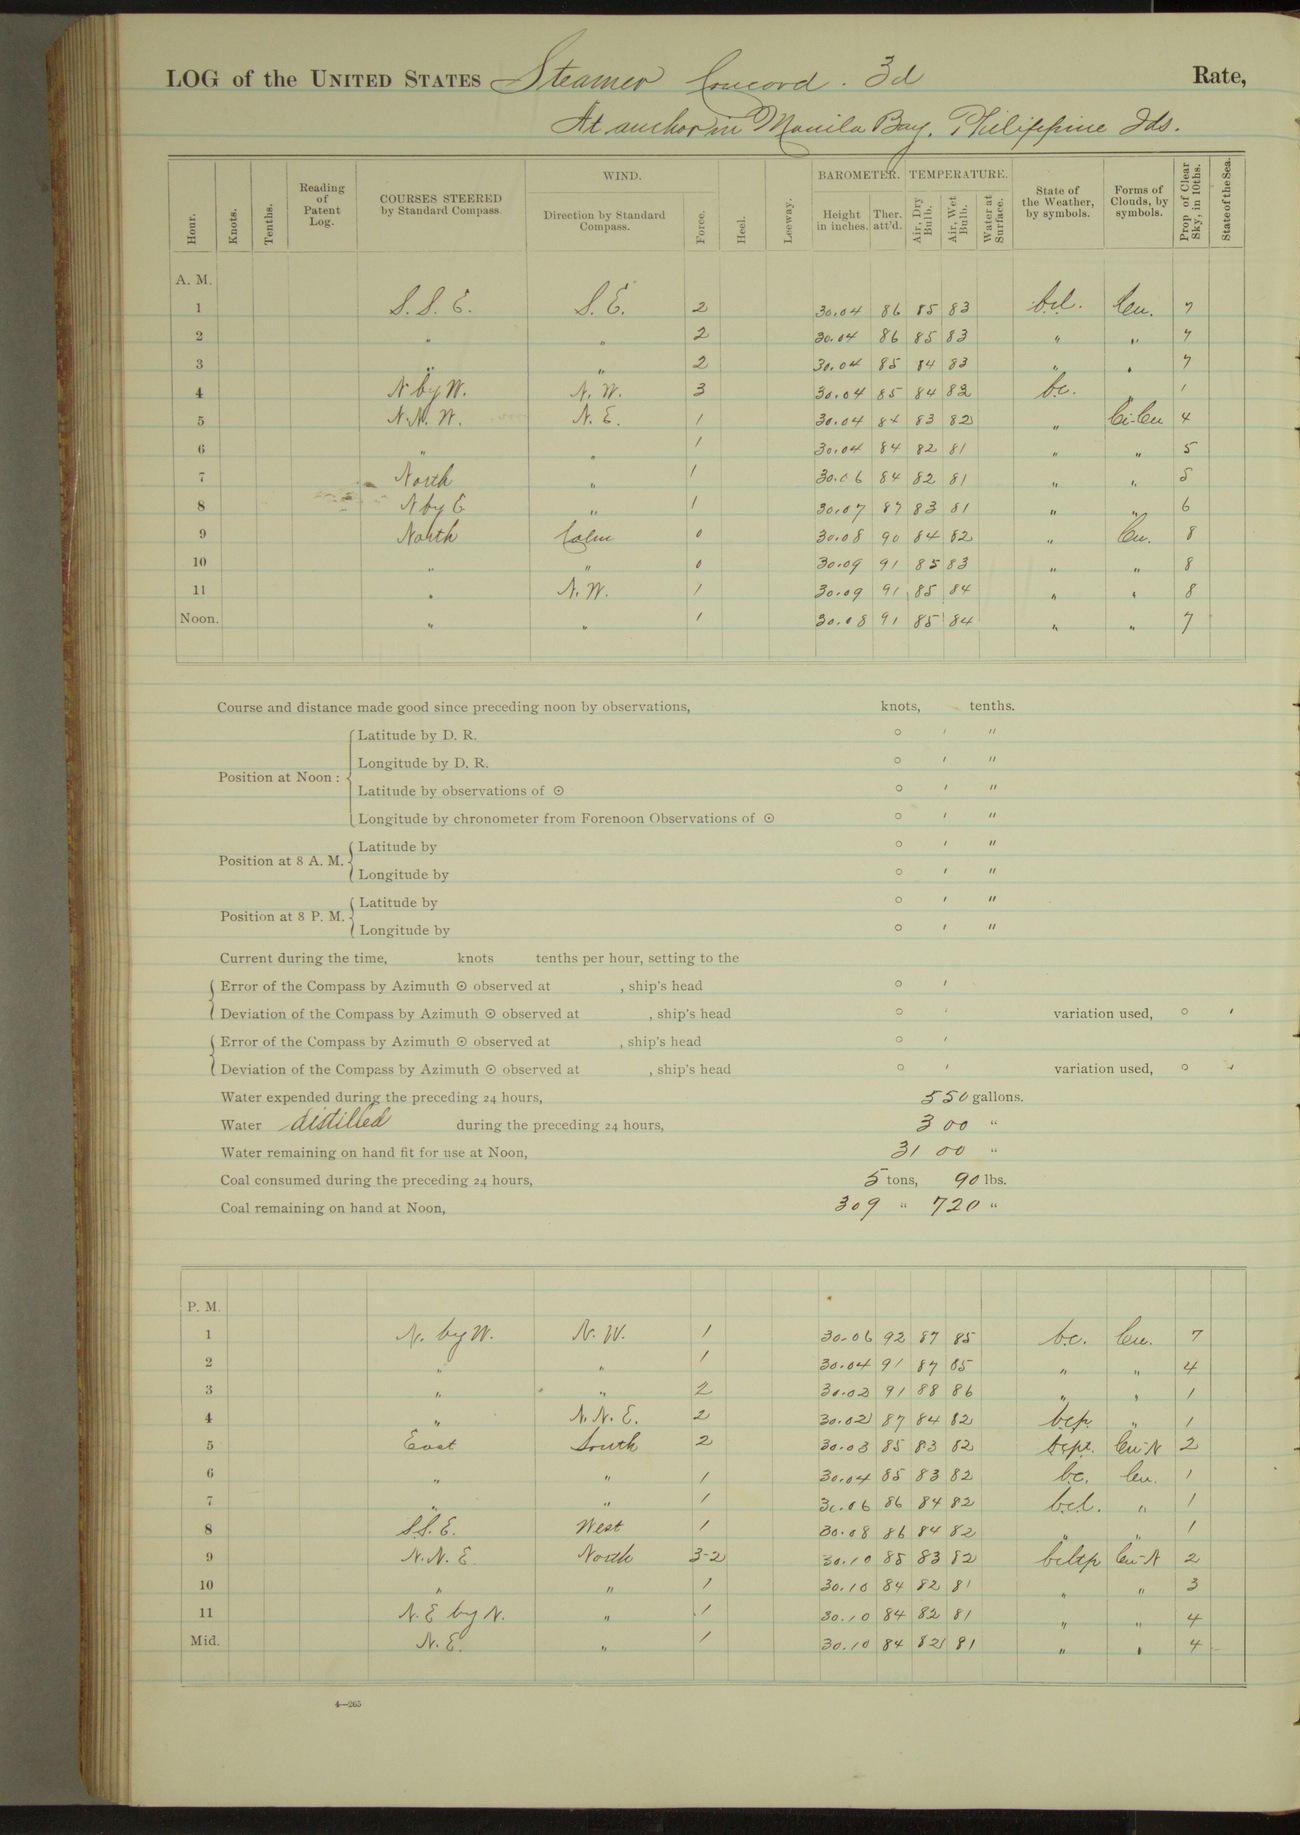 LOG of the UNITED STATES Steamer Concord. 3d Rate,
At anchor in Manila Bay, Philippine Ids.
WIND. BAROMETER. TEMPERATURE.
Hour. Knots. Tenths. Reading of Patent Log. COURSES STEERED by Standard Compass. Direction by Standard Compass. Force. Heel. Leeway. Height in inches. Ther. att'd. Air, Dry Bulb. Air, Wet Bulb. Water at Surface. State of the Weather, by symbols. Forms of Clouds, by symbols. Prop of Clear Sky, in 10ths. State of the Sea.
A. M.
1 S. S. E. S. E. 2 30.04 86 85 83 b.c.l. Cu. 7
2 " " 2 30.04 86 85 83 " " 7
3 " " 2 30.04 85 84 83 " " 7
4 N by W. N. W. 3 30.04 85 84 83 b.c. 1
5 N.N. W. N. E. 1 30.04 84 83 82 " Ci-Cu 4
6 " " 1 30.04 84 82 81 " " 5
7 North " 1 30.06 84 82 81 " " 5
8 N by E " 1 30.07 87 83 81 " " 6
9 North Calm 0 30.08 90 84 82 " Cu. 8
10 " " 0 30.09 91 85 83 " " 8
11 " N. W. 1 30.09 91 85 84 " " 8
Noon. " " 1 30.08 91 85 84 " " 7
Course and distance made good since preceding noon by observations, knots, tenths.
Position at Noon :
Latitude by D. R. ° ′ ″
Longitude by D. R. ° ′ ″
Latitude by observations of ☉ ° ′ ″
Longitude by chronometer from Forenoon Observations of ☉ ° ′ ″
Position at 8 A. M.
Latitude by ° ′ ″
Longitude by ° ′ ″
Position at 8 P. M.
Latitude by ° ′ ″
Longitude by ° ′ ″
Current during the time, knots tenths per hour, setting to the
Error of the Compass by Azimuth ☉ observed at , ship's head ° ′
Deviation of the Compass by Azimuth ☉ observed at , ship's head ° ′ variation used, ° ′
Error of the Compass by Azimuth ☉ observed at , ship's head ° ′
Deviation of the Compass by Azimuth ☉ observed at , ship's head ° ′ variation used, ° ′
Water expended during the preceding 24 hours, 550 gallons.
Water distilled during the preceding 24 hours, 300 "
Water remaining on hand fit for use at Noon, 3100 "
Coal consumed during the preceding 24 hours, 5 tons, 90 lbs.
Coal remaining on hand at Noon, 309 " 720 "
P. M.
1 N. by W. N. W. 1 30.06 92 87 85 b.c. Cu. 7
2 " " 1 30.04 91 87 85 " " 4
3 " " 2 30.02 91 88 86 " " 1
4 " N. N. E. 2 30.02 87 84 82 bcp. " 1
5 East South 2 30.03 85 83 82 Cu-N 2
6 " " 1 30.04 85 83 82 b.c. Cu. 1
7 " " 1 30.06 86 84 82 b.c.l. " 1
8 S.S. E. West 1 30.08 86 84 82 " " 1
9 N. N. E. North 3-2 30.10 85 83 82 bcltp Cu-N 2
10 " " 1 30.10 84 82 81 " " 3
11 N. E by N. " 1 30.10 84 82 81 " " 4
Mid. N. E. " 1 30.10 84 82 81 " " 4
4—265